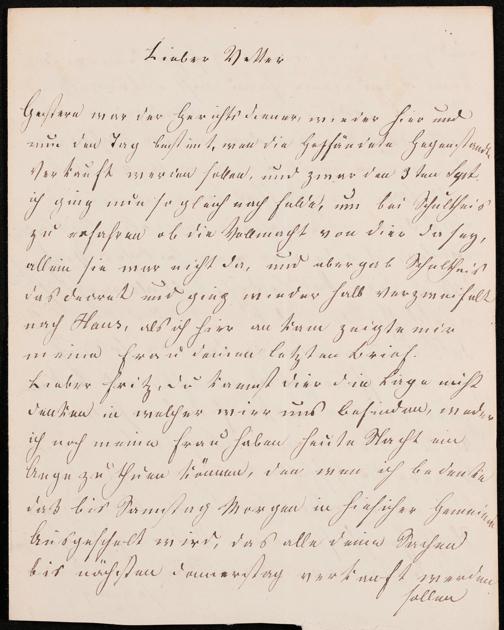 Lieber Vetter
Gestern war der Gerichtsdiener, wieder hier und
nun den Tag bestimt, wen die Gepfändete Gegenstände
Verkauft werden sollen, und zwar den 3ten Spt.
ich ging nun so gleich nach felde, um bei Schultheis
zu erfahren ob die Vollmacht von dier da sey,
allein sie war nicht da, und übergab Schultheis
das decret und ging wieder halb verzweifelt
nach Haus, als ich hier an kam zeigte mir
meine Frau deinen letzten Brief.
Lieber Fritz, du kannst dier die Lage nicht
denken in welcher wier uns befinden, weder
ich noch meine Frau haben heute Nacht ein
Auge zu thuen können, den wen ich bedenke
daß bis Samstag Morgen in hiesicher Gemeinde
Ausgeschelt wird, das alle deine Sachen
bis nächsten Donnerstag verkauft werden
sollen